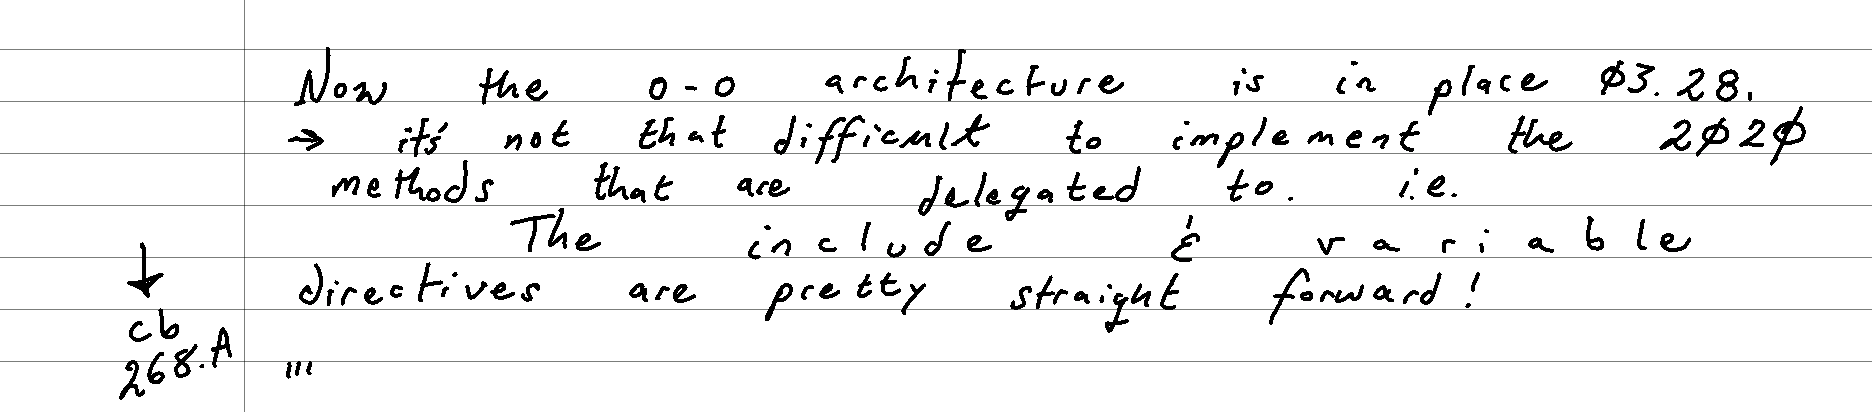 Now the o-o architecture is in place Ø3.28.
→ it's not that difficult to implement the 2Ø2Ø
methods that are delegated to. i.e.
The include & variable
directives are pretty straight forward!
↓
cb
268.A
...